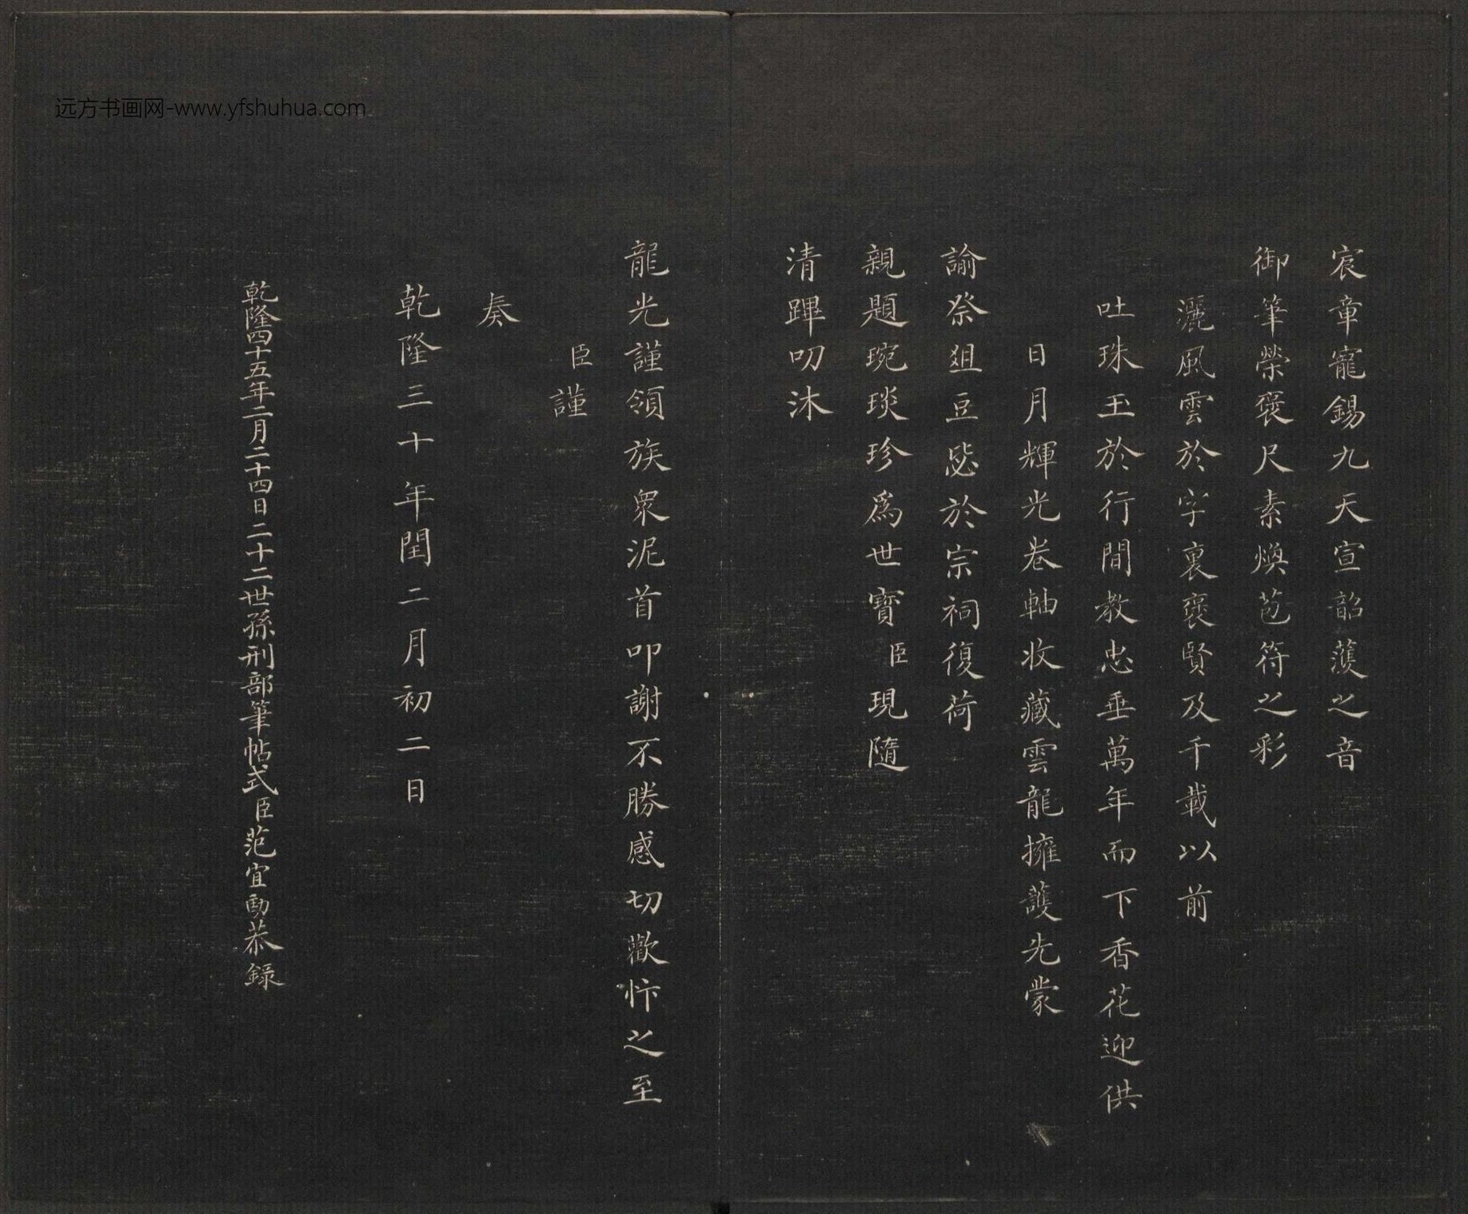 远方书画网-www.yfshuhua.com
宸章寵錫九天宣韶濩之音
御筆榮褒尺素煥苞符之彩
灑風雲於字裏褒賢及千載以前
吐珠玉於行間教忠垂萬年而下香花迎供
日月輝光卷軸收藏雲龍擁護先蒙
諭祭俎豆毖於宗祠復荷
親題琬琰珍為世寶臣現隨
清蹕叨沐
龍光謹領族衆泥首叩謝不勝感切歡忭之至
臣謹
奏
乾隆三十年閏二月初二日
乾隆四十五年二月二十四日二十二世孫刑部筆帖式臣范宜勳恭錄